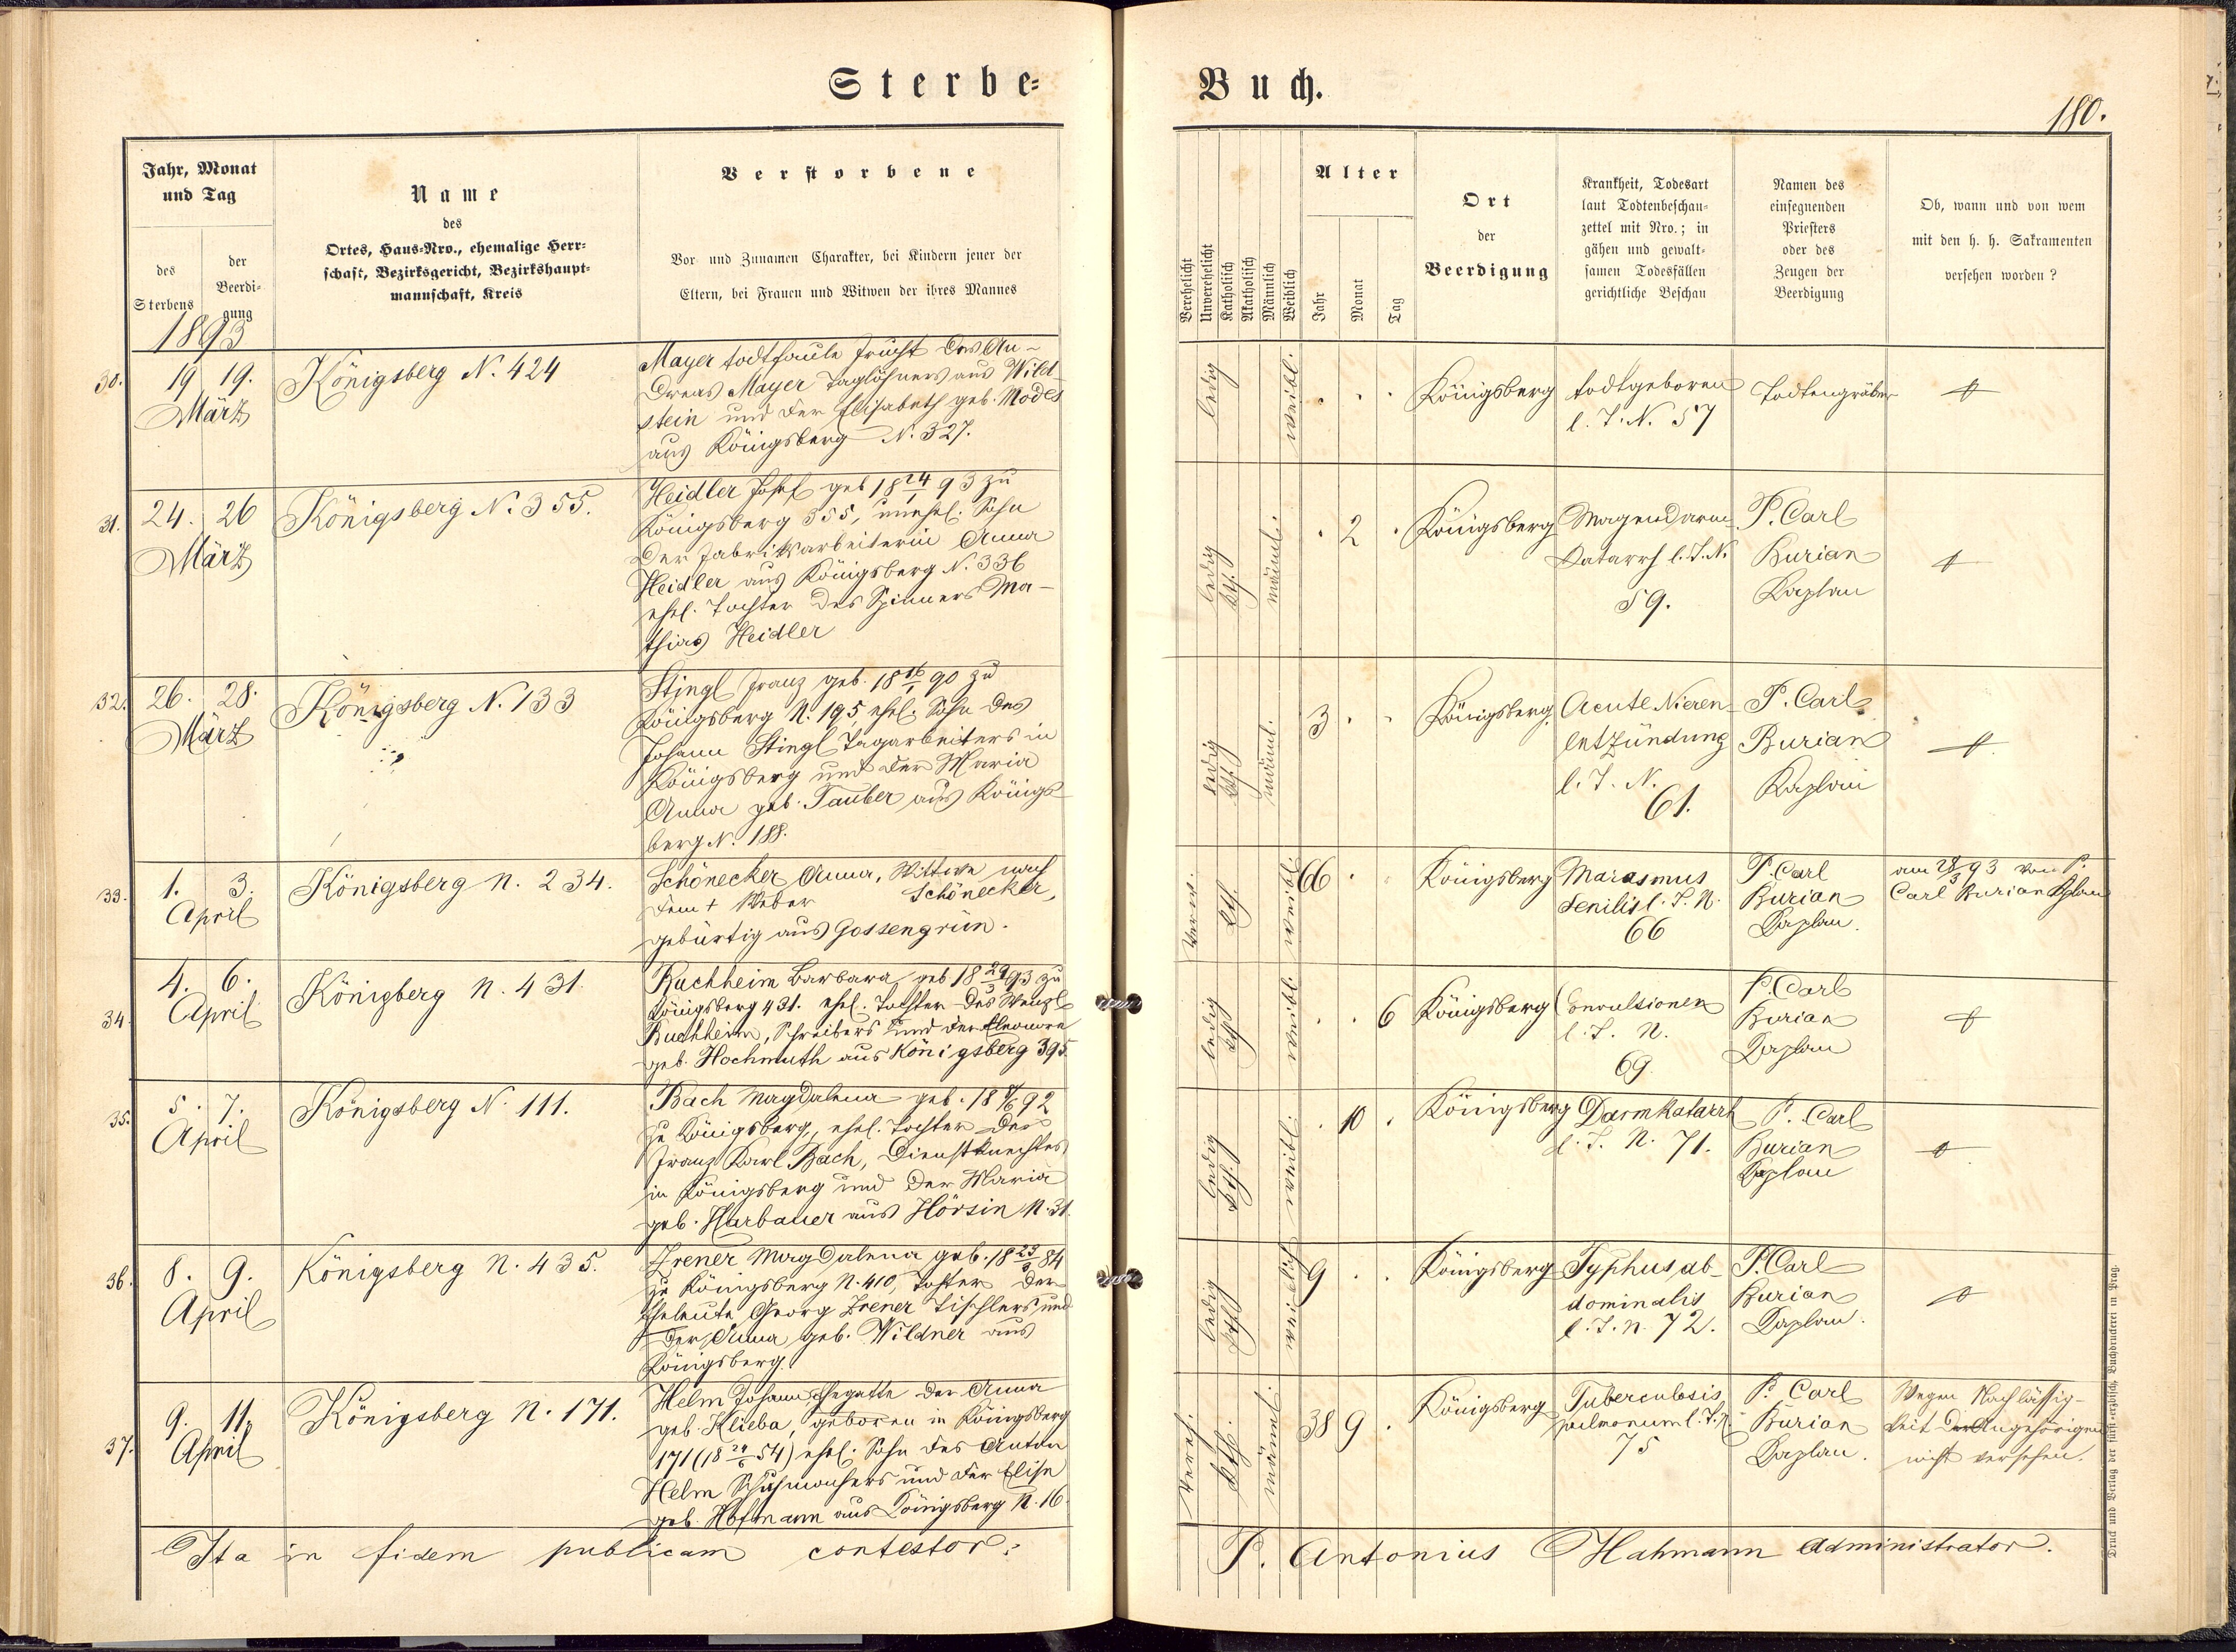 Sterbe-
Buch.
180.
Jahr, Monat
und Tag
des
Sterbens
der
Beerdi-
gung
1893
Name
des
Ortes, Haus-Nro., ehemalige Herr-
schaft, Bezirksgericht, Bezirkshaupt-
mannschaft, Kreis
Verstorbene
Vor- und Zunamen Charakter, bei Kindern jener der
Eltern, bei Frauen und Witwen der ihres Mannes
Verehelicht
Unverehelicht
Katholisch
Akatholisch
Männlich
Weiblich
Alter
Jahr
Monat
Tag
Ort
der
Beerdigung
Krankheit, Todesart
laut Todtenbeschau-
zettel mit Nro.; in
gähen und gewalt-
samen Todesfällen
gerichtliche Beschau
Namen des
einsegnenden
Priesters
oder des
Zeugen der
Beerdigung
Ob, wann und von wem
mit den h. h. Sakramenten
versehen worden?
30.
19 19.
März
Königsberg N. 424
Mayer todtfaule Frucht des An-
dreas Mayer Taglöhners aus Wild
stein und der Elisabeth geb. Modes
aus Königsberg N. 327.
ledig
weibl.
Königsberg
todtgeboren
l. T. N. 57
Todtengräber
31.
24. 26
März
Königsberg N. 355.
Heidler Josef geb 18 24/1 93 zu
Königsberg 355, unehel. Sohn
der Fabriksarbeiterin Anna
Heidler aus Königsberg N. 336
ehel. Tochter des Spinners Ma-
thias Heidler
ledig
kth.
männl.
2
Königsberg
Magendarm
Katarrh l. T. N.
59.
P. Carl
Burian
Kaplan
32.
26. 28.
März
Königsberg N. 133
Stingl Franz geb. 18 16/1 90 zu
Königsberg N. 195, ehel. Sohn des
Johann Stingl Tagarbeiters in
Königsberg und der Maria
Anna geb. Tauber aus Königs-
berg N. 188.
ledig
kth.
männl.
3
Königsberg.
Acute Nieren-
entzündung
l. T. N.
61.
P. Carl
Burian
Kaplan
33.
1. 3.
April
Königsberg N. 234.
Schönecker Anna, Wittwe nach
dem † Weber Schönecker,
gebürtig aus Gossengrün.
Verw.
kth.
weibl.
66
Königsberg
Marasmus
senilis l. T. N.
66
P. Carl
Burian
Kaplan.
am 28/3 93 von P.
Carl Burian Kplan
34.
4. 6.
April
Königberg N. 431.
Buchheim Barbara, geb 18 29/3 93 zu
Königsberg 431. ehel. Tochter des Wenzl
Buchheim, Schreibers und der Eleonora
geb. Hochmuth aus Königsberg 395.
ledig
kth
weibl.
6
Königsberg
Convulsionen
l. T. N.
69.
P. Carl
Burian
Kaplan
35.
5. 7.
April
Königsberg N. 111.
Bach Magdalena geb. 18 8/6 92
zu Königsberg, ehel. Tochter des
Franz Karl Bach, Dienstknechtes
in Königsberg und der Maria
geb. Harbauer aus Hörsin N. 31.
ledig
kth.
weibl.
10
Königsberg
Darmkatarrh
l. T. N. 71.
P. Carl
Burian
Kaplan
36.
8. 9.
April
Königsberg N. 435.
Irener Magdalena geb. 18 23/ 84
zu Königsberg N. 410, Tochter der
Eheleute Georg Irener Tischlers und
der Anna geb. Wildner aus
Königsberg.
ledig
kth
weiblich
9
Königsberg
Typhus ab-
dominalis
l. T. N. 72.
P. Carl
Burian
Kaplan.
37.
9. 11.
April
Königsberg N. 171.
Helm Johann, Ehegatte der Anna
geb. Klieba, geboren in Königsberg
171 (18 24/6 54) ehel. Sohn des Anton
Helm Schuhmachers und der Elise
geb. Hofmann aus Königsberg N. 16.
Vereh.
kth.
männl.
38 9
Königsberg
Tuberculosis
pulmonum l. T. N.
75
P. Carl
Burian
Kaplan.
Wegen Nachlässig-
keit der Angehörigen
nicht versehen.
Ita in fidem publicam contestor:
P. Antonius Hahmann Administrator.
Druck und Verlag der fürst-erzbisch. Buchdruckerei in Prag.